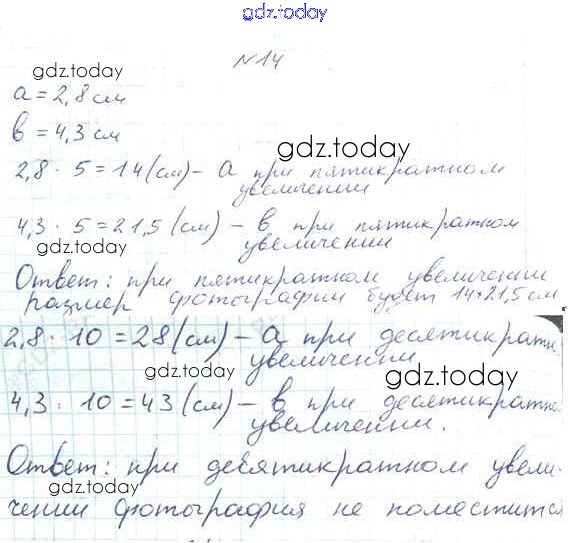 gdz.today
№14
gdz.today
a = 2,8 см
в = 4,3 см
gdz.today
2,8 · 5 = 14 (см) – a при пятикратном
увеличении
4,3 · 5 = 21,5 (см) – в при пятикратном
gdz.today увеличении
Ответ: при пятикратном увеличении
размер фотографии будет 14×21,5 см
2,8 · 10 = 28 (см) – a при десятикратн.
увеличении
gdz.today gdz.today
4,3 · 10 = 43 (см) – в при десятикратном
увеличении.
Ответ: при десятикратном увели-
gdz.today
чении фотография не поместится